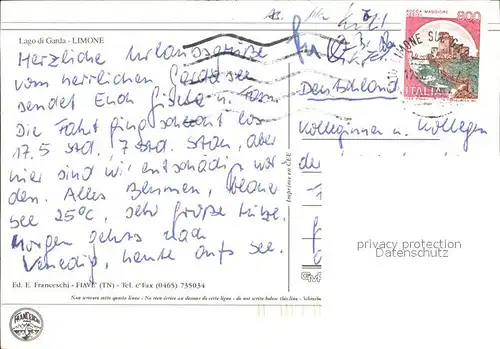 Lago di Garda - LIMONE
Herzliche Urlaubsgrüße
vom herrlichen Gardasee
sendet Euch Gisela u. Fam.
Die Fahrt ging schlecht los
17.5 Std., 7 Std. Stau, aber
hier sind wir entschädigt wor
den. Alles Blumen, blauer
See 25°C, sehr große Hitze.
Morgen gehts nach
Venedig, heute aufs See.
Ed. E. Franceschi - FIAVÉ (TN) - Tel. e Fax (0465) 735034
Non scrivere sotto questa linea - Ne rien écrire au dessous de cette ligne - do not write below this line - Schreiben
FRANCESCHI
Imprimé en CEE
ROCCA MAGGIORE
800
ITALIA
LIMONE SU
Deutschland
Kolleginnen u. Kollegen
de
privacy protection
Datenschutz